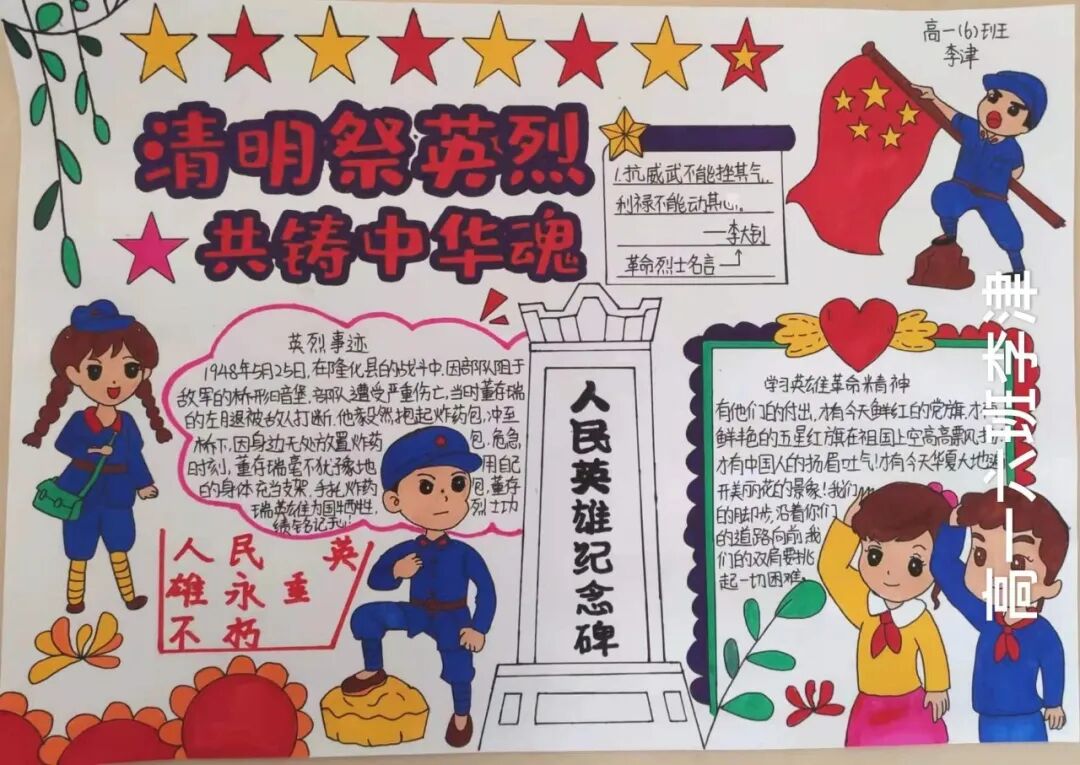 高一(6)班
李津
清明祭英烈
共铸中华魂
1.抗威武不能挫其气,
利禄不能动其心。
——李大钊
革命烈士名言
英烈事迹
1948年5月25日,在隆化县的战斗中,因部队阻于
敌军的桥形旧音堡,部队遭受严重伤亡,当时董存瑞
的左月退被敌人打断,他毅然抱起炸药包,冲至
桥下,因身边无处放置炸药包,危急
时刻,董存瑞毫不犹豫地用自己
的身体充当支架,手托炸药包,董存
瑞英雄为国牺牲,烈士功
绩
人民英
雄永垂
不朽
人民英雄纪念碑
学习英雄革命精神
有他们的付出,才有今天鲜红的党旗,才
鲜艳的五星红旗在祖国上空高高飘风
才有中国人的扬眉吐气!才有今天华夏大地
开美丽花的景象!我们
的脚步,沿着你们
的道路向前,我
们的双肩要挑
起一切困难。
高一六班李津